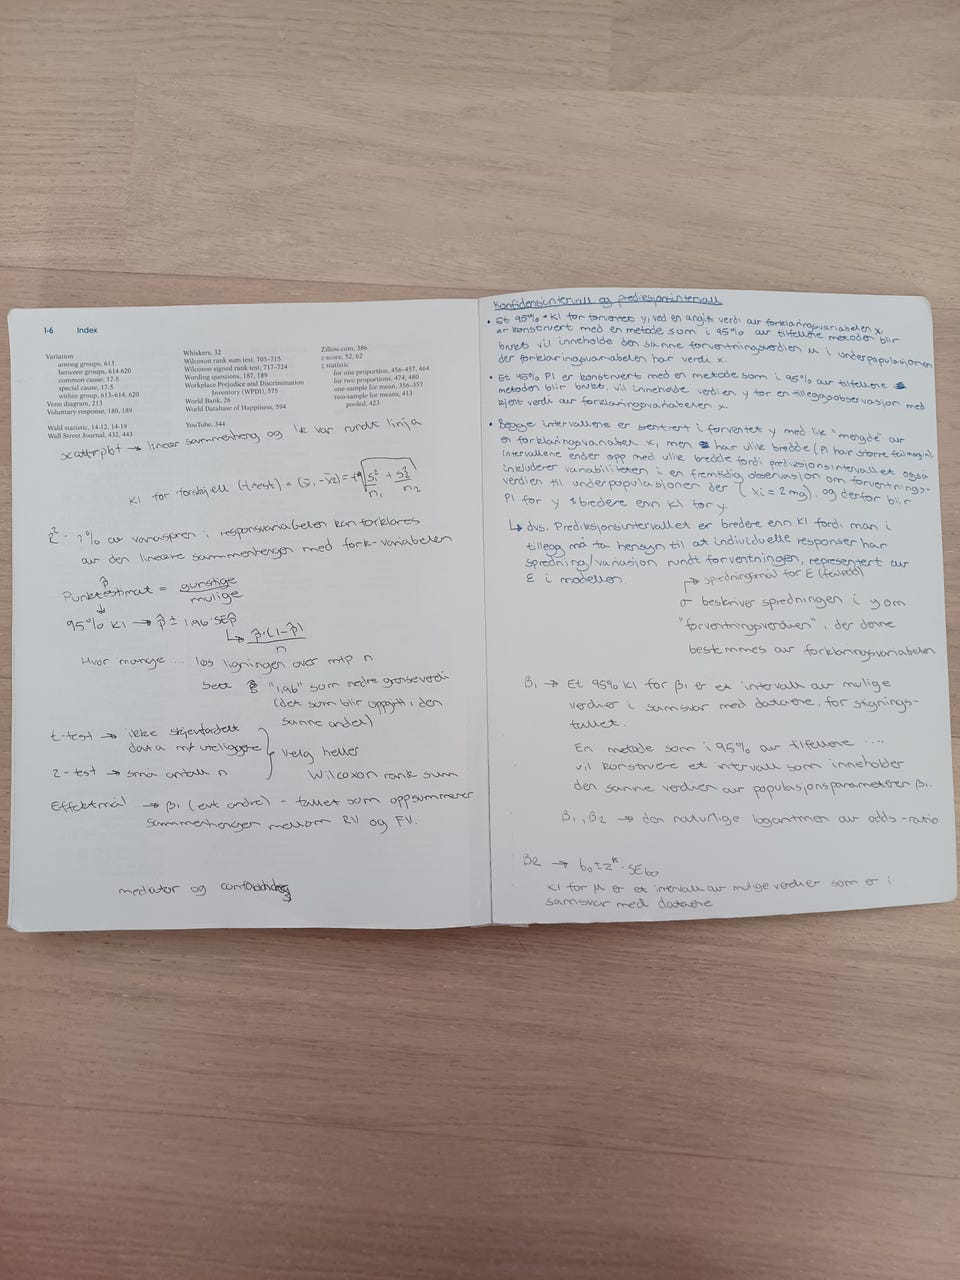 I-6 Index
Variation
among groups, 613
between groups, 614 620
common cause, 17-5
special cause, 17-5
within group, 613-614, 620
Venn diagram, 213
Voluntary response, 180, 189
Wald statistic, 14-12, 14-19
Wall Street Journal, 432, 443
Whiskers, 32
Wilcoxon rank sum test, 705-715
Wilcoxon signed rank test, 717-724
Wording questions, 187, 189
Workplace Prejudice and Discrimination
Inventory (WPDI), 575
World Bank, 26
World Database of Happiness, 594
YouTube, 344
Zillow.com, 386
z-score, 52, 62
z statistic
for one proportion, 456-457, 464
for two proportions, 474, 480
one-sample for mean, 356-357
two-sample for means, 413
pooled, 423
scatterplot → lineær sammenheng og lk var rundt linja
KI for forskjell (t-test) = (x̄₁-x̄₂) = t* √(s₁²/n₁ + s₂²/n₂)
: ?% av variasjonen i responsvariabelen kan forklares
av den lineære sammenhengen med fork-variabelen
p̂
Punktestimat = gunstige/mulige
↓
95% KI → p̂ ± 1.96·SEp̂
↳ p̂·(1-p̂)/n
Hvor mange .... løs ligningen over mtp n
Sett "1,96" som nedre grenseverdi
(det som blir oppgitt i den
sanne andel)
t-test → ikke skjevfordelt
data m/uteliggere
velg heller
z-test → små antall n
Wilcoxon rank sum
Effektmål → β₁ (evt andre) - tallet som oppsummerer
sammenhengen mellom RV og FV.
mediator og
Konfidensintervall og prediksjonsintervall
• Et 95% KI for forventet y, ved en angitt verdi av forklaringsvariabelen x,
er konstruert med en metode som i 95% av tilfellene metoden blir
brukt vil inneholde den sanne forventningsverdien μ i underpopulasjonen
der forklaringsvariabelen har verdi x.
• Et 95% PI er konstruert med en metode som i 95% av tilfellene
metoden blir brukt, vil inneholde verdien y for en tilleggsobservasjon med
kjent verdi av forklaringsvariabelen x.
• Begge intervallene er sentrert i forventet y med lik "mengde" av
en forklaringsvariabel x, men har ulike bredde (PI har større feilmargin).
Intervallene ender opp med ulike bredde fordi prediksjonsintervallet også
inkluderer variabiliteten i en fremtidig observasjon om forventnings-
verdien til underpopulasjonen der (xi = 2mg), og derfor blir
PI for y bredere enn KI for y.
↳ dvs. Prediksjonsintervallet er bredere enn KI fordi man i
tillegg må ta hensyn til at individuelle responser har
spredning/variasjon rundt forventningen, representert av
ε i modellen.
→ spredningsmål for ε (feilledd)
σ beskriver spredningen i y om
"forventningsverdien", der denne
bestemmes av forklaringsvariabelen
β₁ → Et 95% KI for β₁ er et intervall av mulige
verdier i samsvar med dataene, for stignings-
tallet.
En metode som i 95% av tilfellene ....
vil konstruere et intervall som inneholder
den sanne verdien av populasjonsparameteren β₁.
β₁, β₂ → den naturlige logaritmen av odds-ratio
β₂ → b₀ ± z*·SEb₀
KI for μ er et intervall av mulige verdier som er i
samsvar med dataene